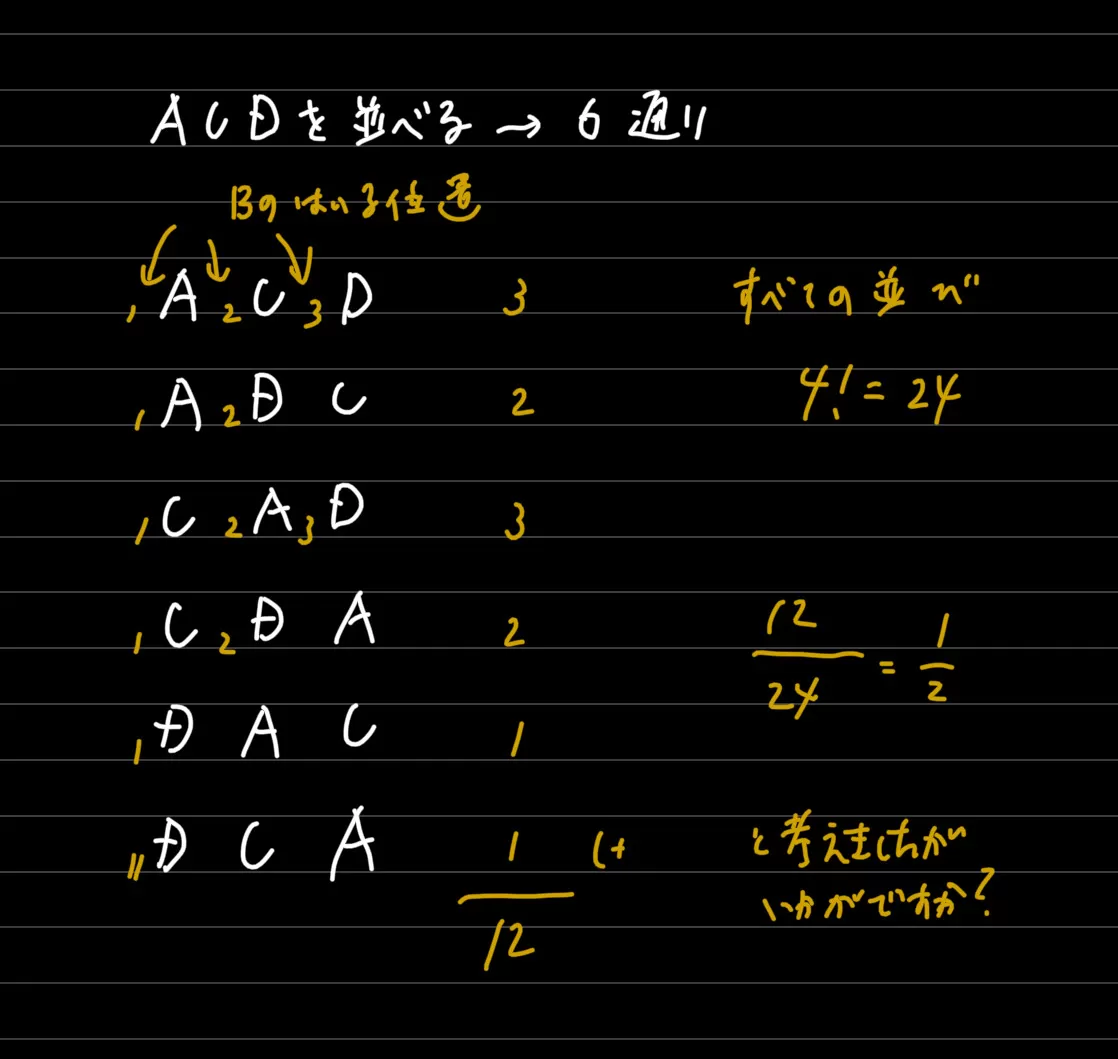 ACDを並べる→6通り
Bのはいる位置
1 A 2 C 3 D 3
すべての並び
1 A 2 D C 2
4! = 24
1 C 2 A 3 D 3
1 C 2 D A 2
12/24 = 1/2
1 D A C 1
1 D C A 1 (+
12
と考えましたが
いかがですか?